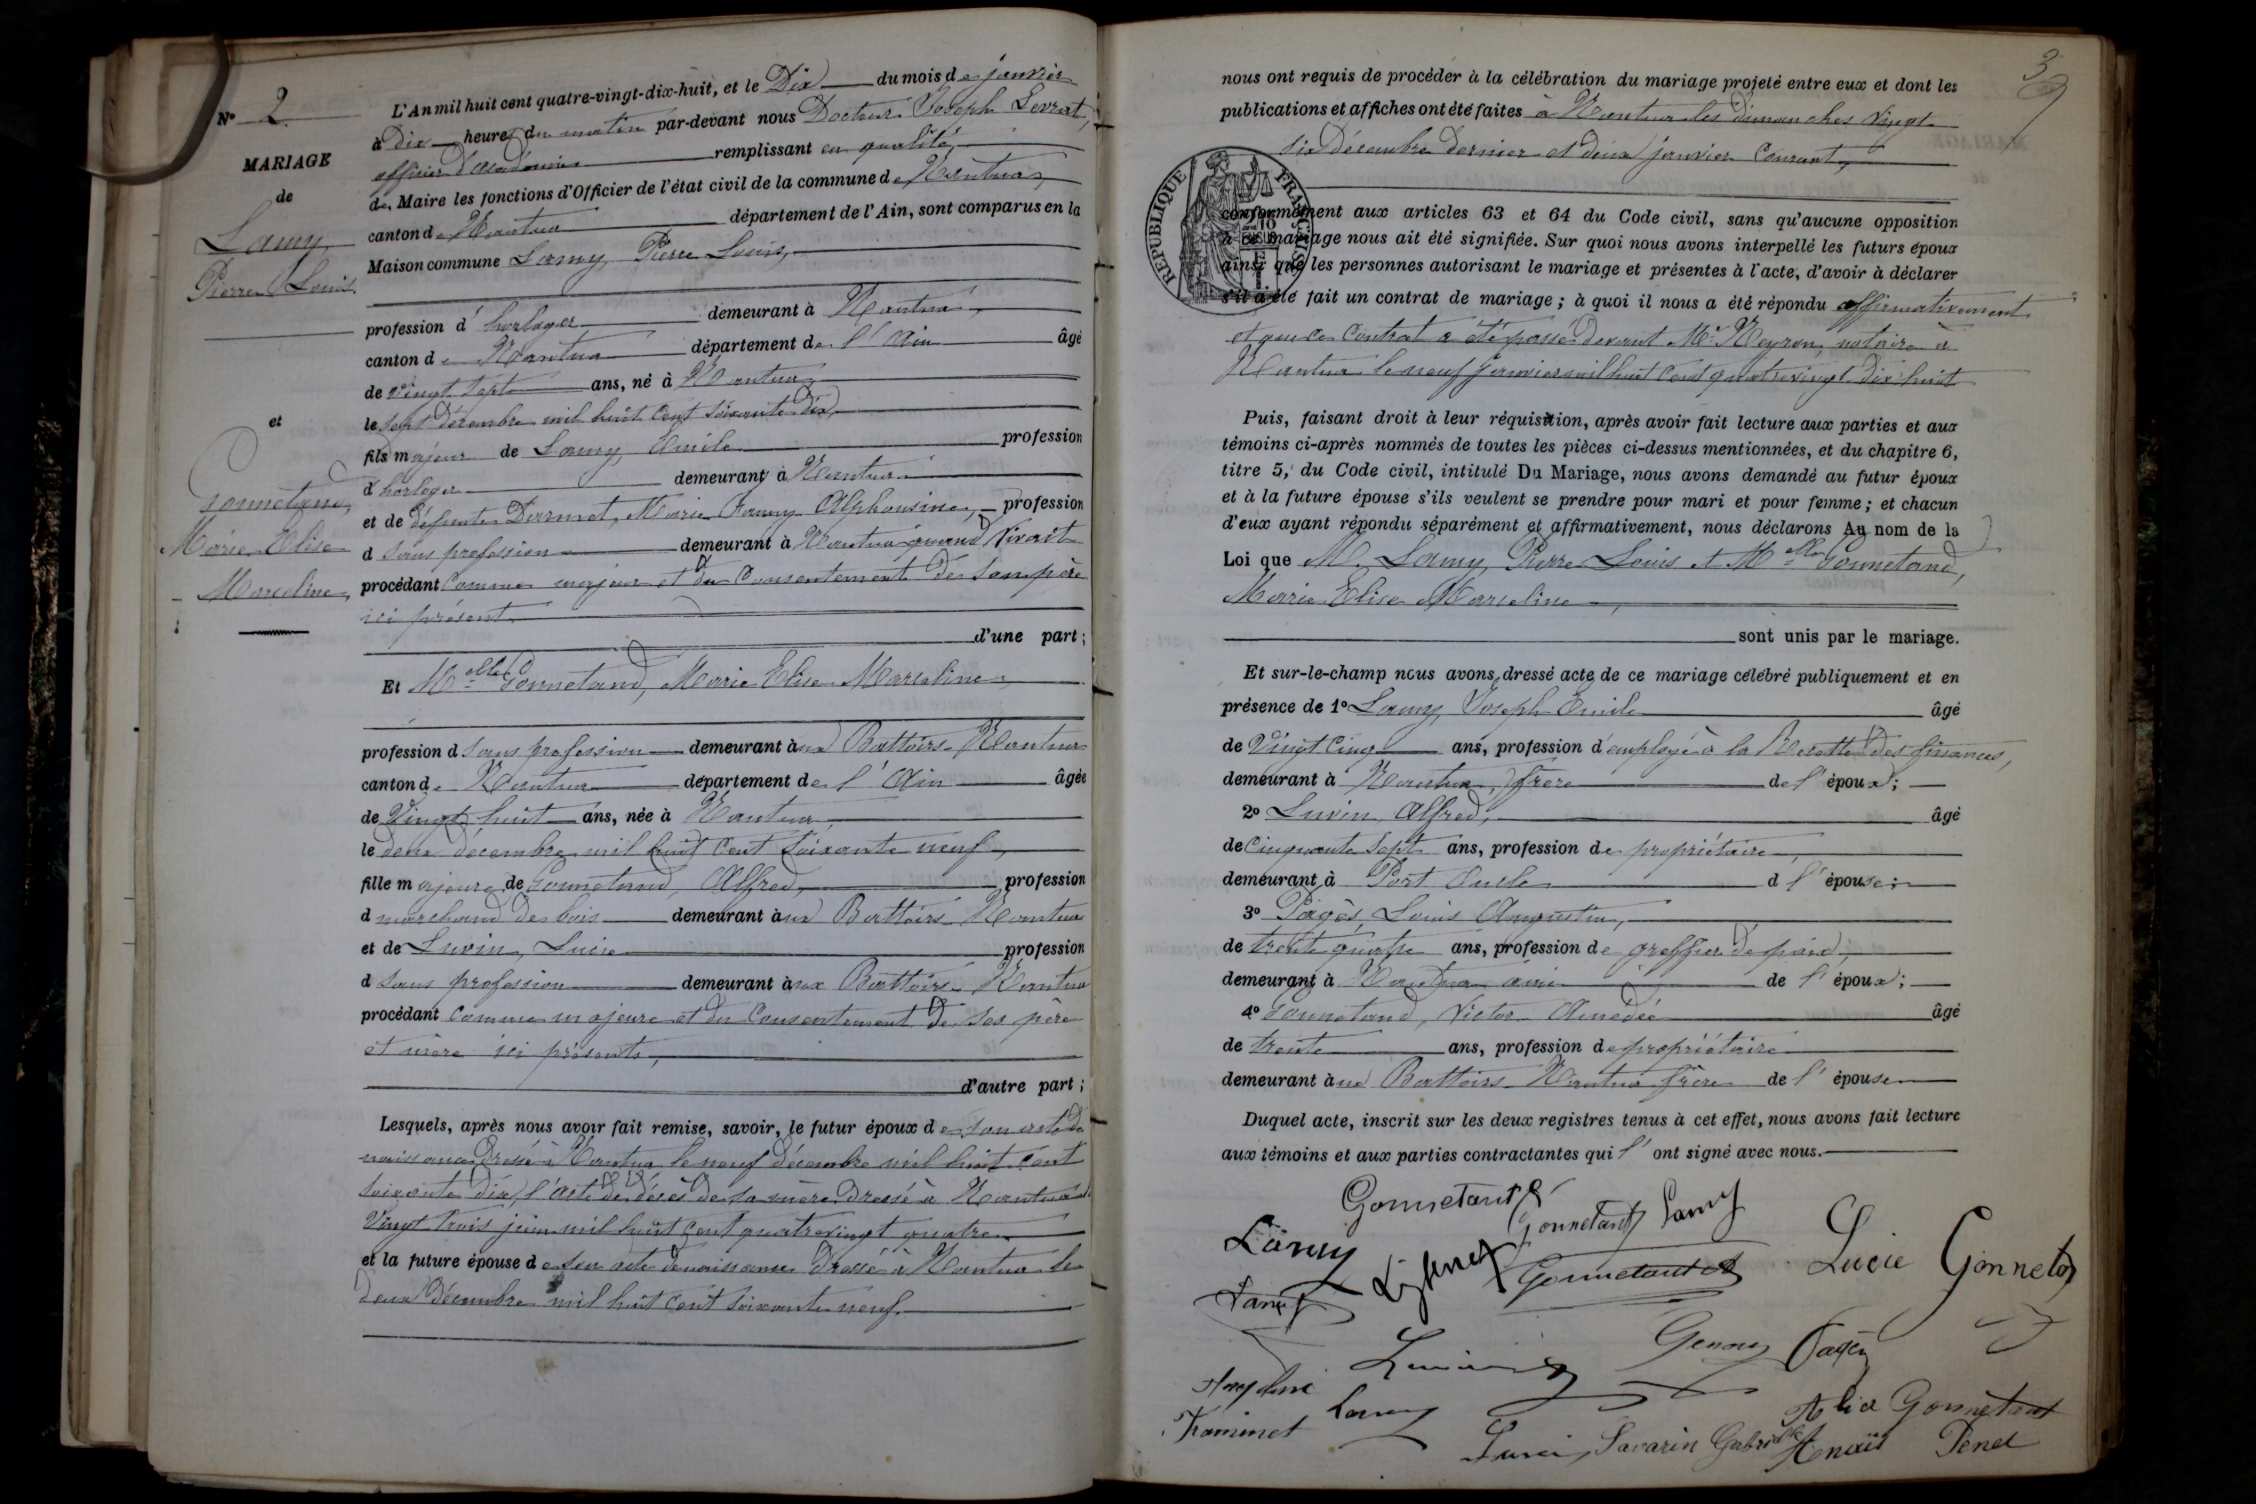 N° 2
MARIAGE
de
Lamy
Pierre Louis
et
Gonnetand,
Marie Elise
Marceline,
L'An mil huit cent quatre-vingt-dix-huit, et le Dix du mois de janvier
à Dix heures du matin par-devant nous Docteur Joseph Levrat,
officier d'Académie remplissant en qualité,
de Maire les fonctions d'Officier de l'état civil de la commune de Nantua,
canton de Nantua département de l'Ain, sont comparus en la
Maison commune Lamy, Pierre Louis,
profession d'horloger demeurant à Nantua,
canton de Nantua département de l'Ain âgé
de vingt sept ans, né à Nantua,
le sept décembre mil huit cent soixante dix,
fils majeur de Lamy, Emile profession
d'horloger demeurant à Nantua
et de défunte Darmet, Marie Fanny Alphonsine, profession
d sans profession demeurant à Nantua quand vivait
procédant comme majeur et du consentement de son père
ici présent
d'une part;
Et Melle Gonnetand, Marie Elise Marceline,
profession d sans profession demeurant aux Battoirs Nantua
canton de Nantua département de l'Ain âgée
de Vingt huit ans, née à Nantua,
le deux décembre mil huit cent soixante neuf,
fille majeure de Gonnetand, Alfred, profession
d marchand de bois demeurant aux Battoirs Nantua
et de Luvin, Lucie profession
d sans profession demeurant aux Battoirs Nantua
procédant comme majeure et du consentement de ses père
et mère ici présents,
d'autre part;
Lesquels, après nous avoir fait remise, savoir, le futur époux de son acte de
naissance dressé à Nantua le neuf décembre mil huit cent
soixante dix, l'acte de décès de sa mère dressé à Nantua le
Vingt trois juin mil huit cent quatrevingt quatre
et la future épouse de son acte de naissance dressé à Nantua le
deux décembre mil huit cent soixante neuf.
3
nous ont requis de procéder à la célébration du mariage projeté entre eux et dont les
publications et affiches ont été faites à Nantua les dimanches vingt
six décembre dernier et deux janvier courant,
RÉPUBLIQUE FRANÇAISE
conformément aux articles 63 et 64 du Code civil, sans qu'aucune opposition
à ce mariage nous ait été signifiée. Sur quoi nous avons interpellé les futurs époux
ainsi que les personnes autorisant le mariage et présentes à l'acte, d'avoir à déclarer
s'il a été fait un contrat de mariage; à quoi il nous a été répondu affirmativement
et que ce contrat a été passé devant Me Neyron, notaire à
Nantua le neuf janvier mil huit cent quatrevingt dix huit
Puis, faisant droit à leur réquisition, après avoir fait lecture aux parties et aux
témoins ci-après nommés de toutes les pièces ci-dessus mentionnées, et du chapitre 6,
titre 5, du Code civil, intitulé Du Mariage, nous avons demandé au futur époux
et à la future épouse s'ils veulent se prendre pour mari et pour femme; et chacun
d'eux ayant répondu séparément et affirmativement, nous déclarons Au nom de la
Loi que M. Lamy, Pierre Louis et Melle Gonnetand,
Marie Elise Marceline,
sont unis par le mariage.
Et sur-le-champ nous avons dressé acte de ce mariage célébré publiquement et en
présence de 1° Lamy Joseph Emile âgé
de Vingt cinq ans, profession d'employé à la Recette des finances,
demeurant à Nantua, frère de l'époux;
2° Luvin, Alfred, âgé
de Cinquante sept ans, profession de propriétaire,
demeurant à Port d l'épouse;
3° Pagès, Louis Augustin,
de trente quatre ans, profession de greffier de paix,
demeurant à Nantua ami de l'époux;
4° Gonnetand, Victor Amédée âgé
de trente ans, profession de propriétaire
demeurant aux Battoirs Nantua frère de l'épouse
Duquel acte, inscrit sur les deux registres tenus à cet effet, nous avons fait lecture
aux témoins et aux parties contractantes qui l'ont signé avec nous.
Gonnetant
Lamy Gonnetant Lamy
Gonnetant Lucie Gonneta
Lamy
Luvin Genou Pagès
Lamy Alida Gonnetant
Savarin Gabrielle Anaïs Penel